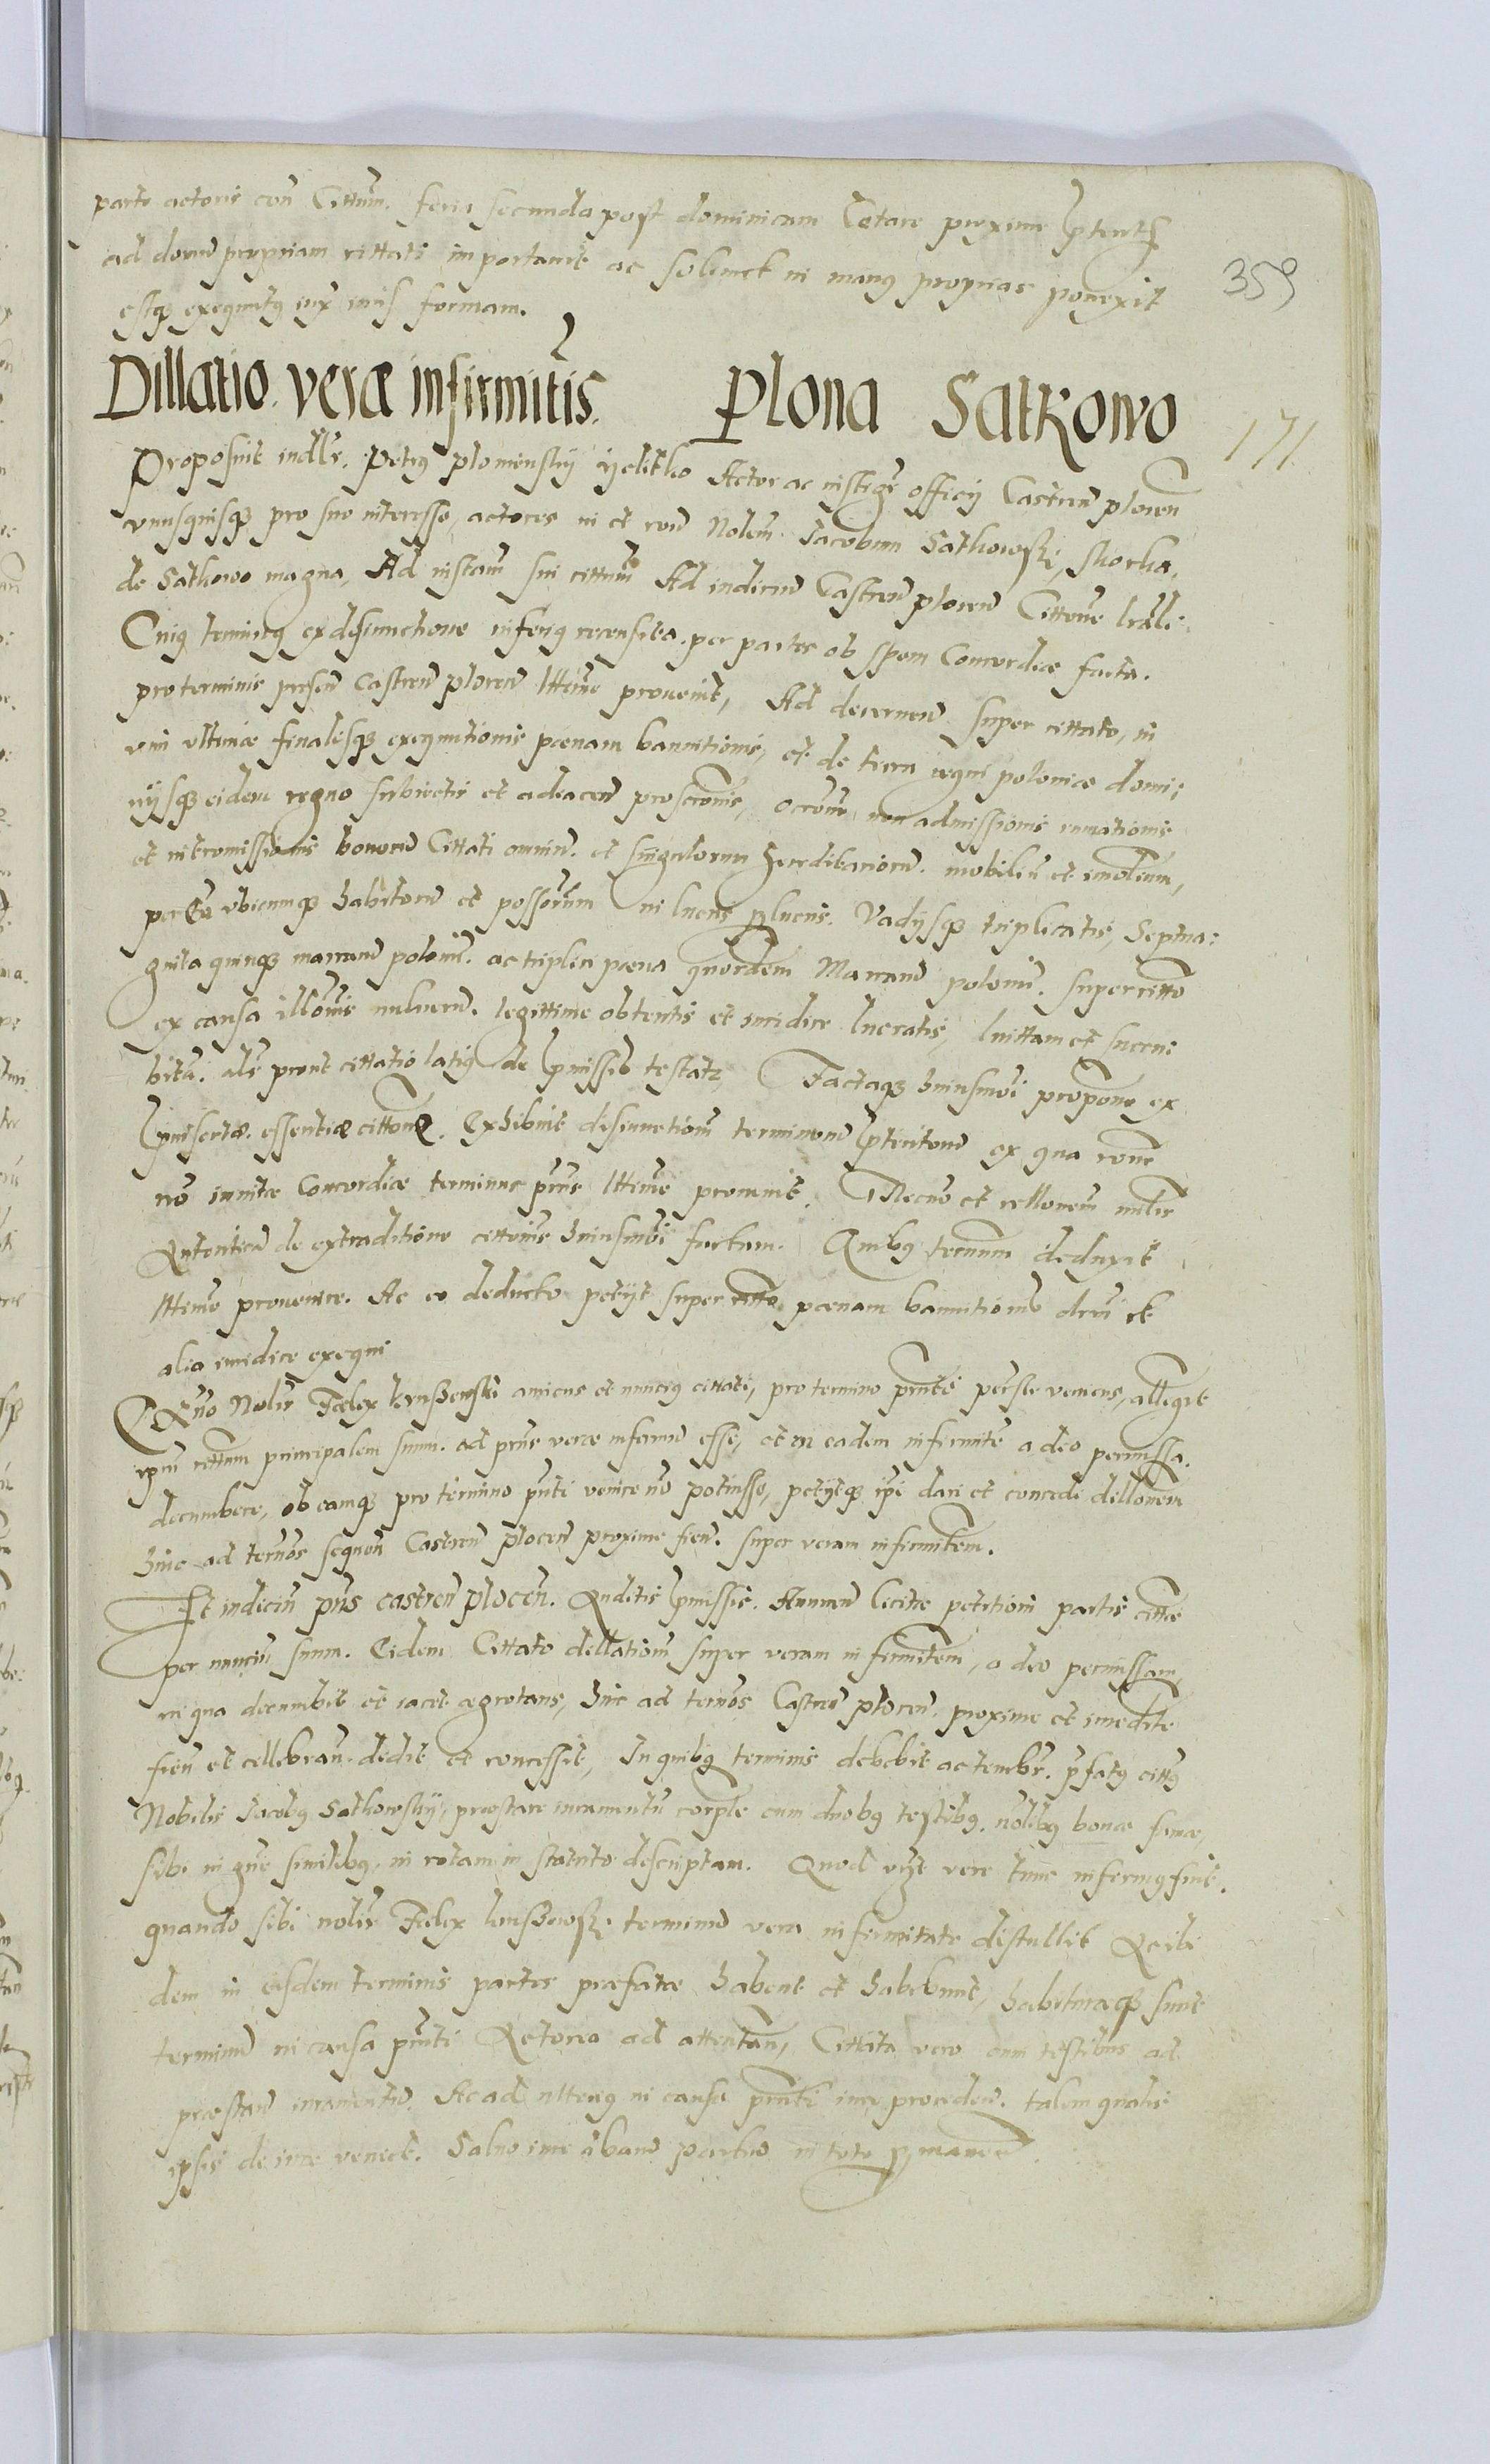 parte actoris con Cittum. feria secunda post dominicam Letare proxime pterit
ad domu propriam cittati importavit ac solvuct in manus proprias porrexit
estq exequutus iux iuris formam.
359
Dillatio verae infirmitis. Plona Satkowo
171
Proposuit indlr. Petrus plomenskij ijelitko Actor ac instigr officij Castren plocen
unusquisq pro suo interesse, actores in et con Nolem Jacobum Satkowski, skorka,
de Satkowo magna, Ad instam sui cittum Ad iudicium Castren plocen Cittone lrali.
Cuius terminus ex disiunctione inferius recensita per partes ob spem Concordiae facta.
pro terminis presen Castren plocen lttime provenit, Ad decernen super cittato, in
vim ultimae finalesq exequutionis paenam bannitionis, et de terra regni poloniae domi:
nijsq eidem regno subiectis et adiacen proscronis, ocrom non admissionis rumationis
et intromissionis bonorum Cittati omnium et singulorum hereditariorum mobilium et imolium,
per Eu ubicumq habitorum et possorum in lucris perlucris. Vadijsq triplicatis, Septua:
ginta quinq marcarum polonic. ac triplici paena quordem Marcarum polonic. super citto
ex causa illonis mulierum. legittime obtentis et iuridice lucratis, luittam et succu:
bitam. als prout cittatio latius de pmissis testatr Factaq huiusmoi propone ex
pinsertae essentiae cittonis. Exhibuit disiunctionem terminorum pteritorum ex qua rone
non initae Concordiae terminus prns lttime provenit. Necno et rellonem mlir
Autenticam de extraditione cittonis huiusmoi factam. Quibus terminum deduxit
lttime provenire. Ac eo deducto petijt super citto paenam bannitionis decerni et
alia iuridice exequi
Quo Nolir Faelex krusBewski amicus et nuncius cittati, pro termino prnti persle veniens, allegavit
ipsum cittum principalem suum. ad prns verae infirmum esse, et in eadem infirmite a deo permissa.
decumbere, ob eamq pro termino pnti venire no potuisse, petijtq ipi dari et concedi dillonem
hinc ad ternos sequen Castren plocen proxime fien. super veram infirmitem.
Et iudicium pns castren plocen. Auditis pmissis. Annuen licitae petitioni partis cittae
per nuncium suum. Eidem Cittato dillationem super veram infirmitem, a deo permissam,
in qua decumbit et iacet aegrotans, hinc ad ternos Castren plocen. proxime et imediate
fien et cellebran. dedit et concessit, In quibus terminis debebit ac tenebr. pfatus cittus
Nobilis Jacobus Satkowskij, praestare iuramentum corple cum duobus testibus. nolibus bonae famae,
sibi in gne similibus, in rotam in statuto descriptam. Quod vizt vere tunc infirmus fuit.
quando sibi nolir Faelex krusBewski terminum vera infirmitate distullit Et ibi
dem in eisdem terminis partes praefatae habent et habebunt, habituraeq sunt
terminum in causa pnti Actorea ad attentan, Cittata vero cum testibus ad
praestan iuramentum. Ac ad ulterius in causa pnti iure proceden. talem qualis
ipsis de iure veniet. Salvo iure ambarum partium in toto permanen.